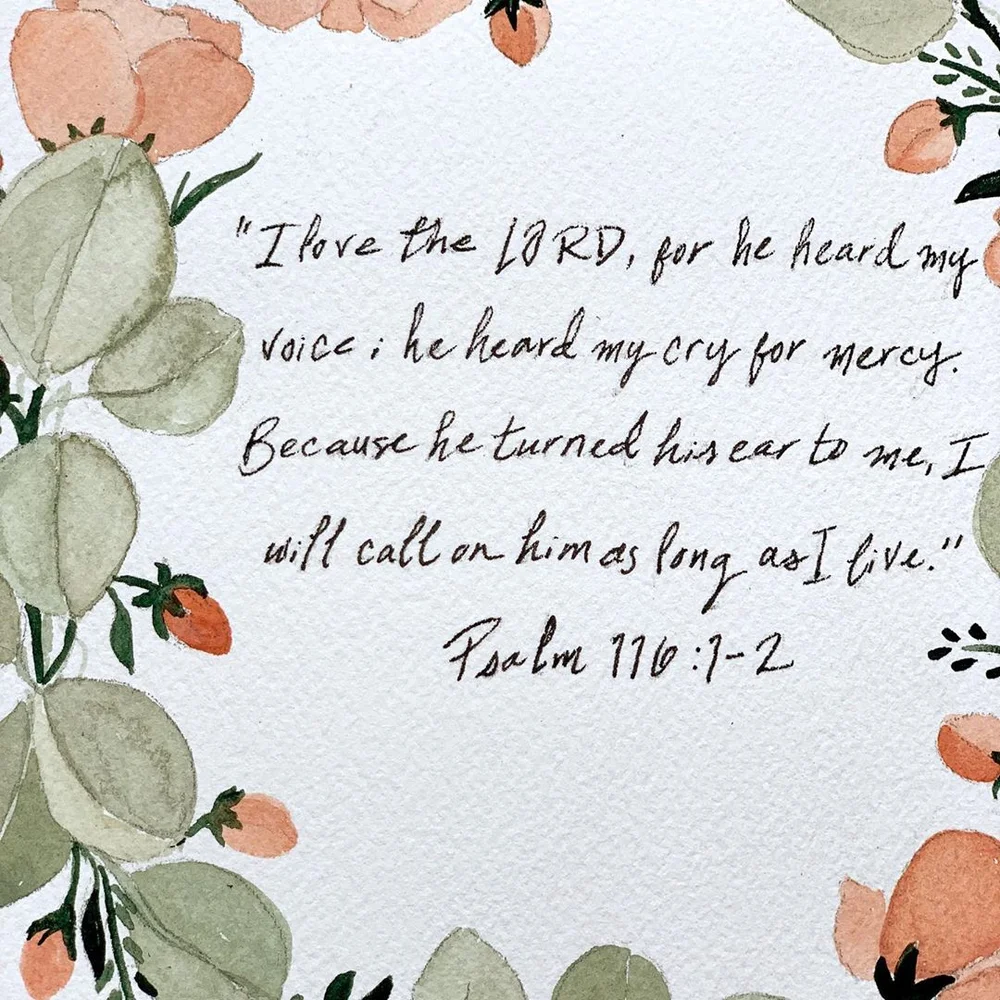 "I love the LORD, for he heard my
voice; he heard my cry for mercy.
Because he turned his ear to me, I
will call on him as long as I live."
Psalm 116:1-2